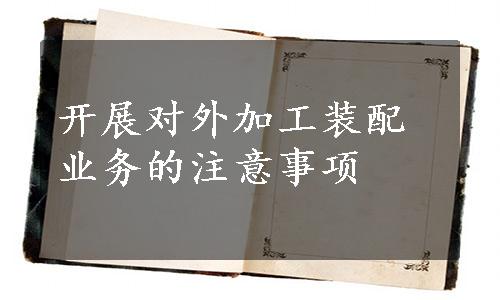 开展对外加工装配
业务的注意事项